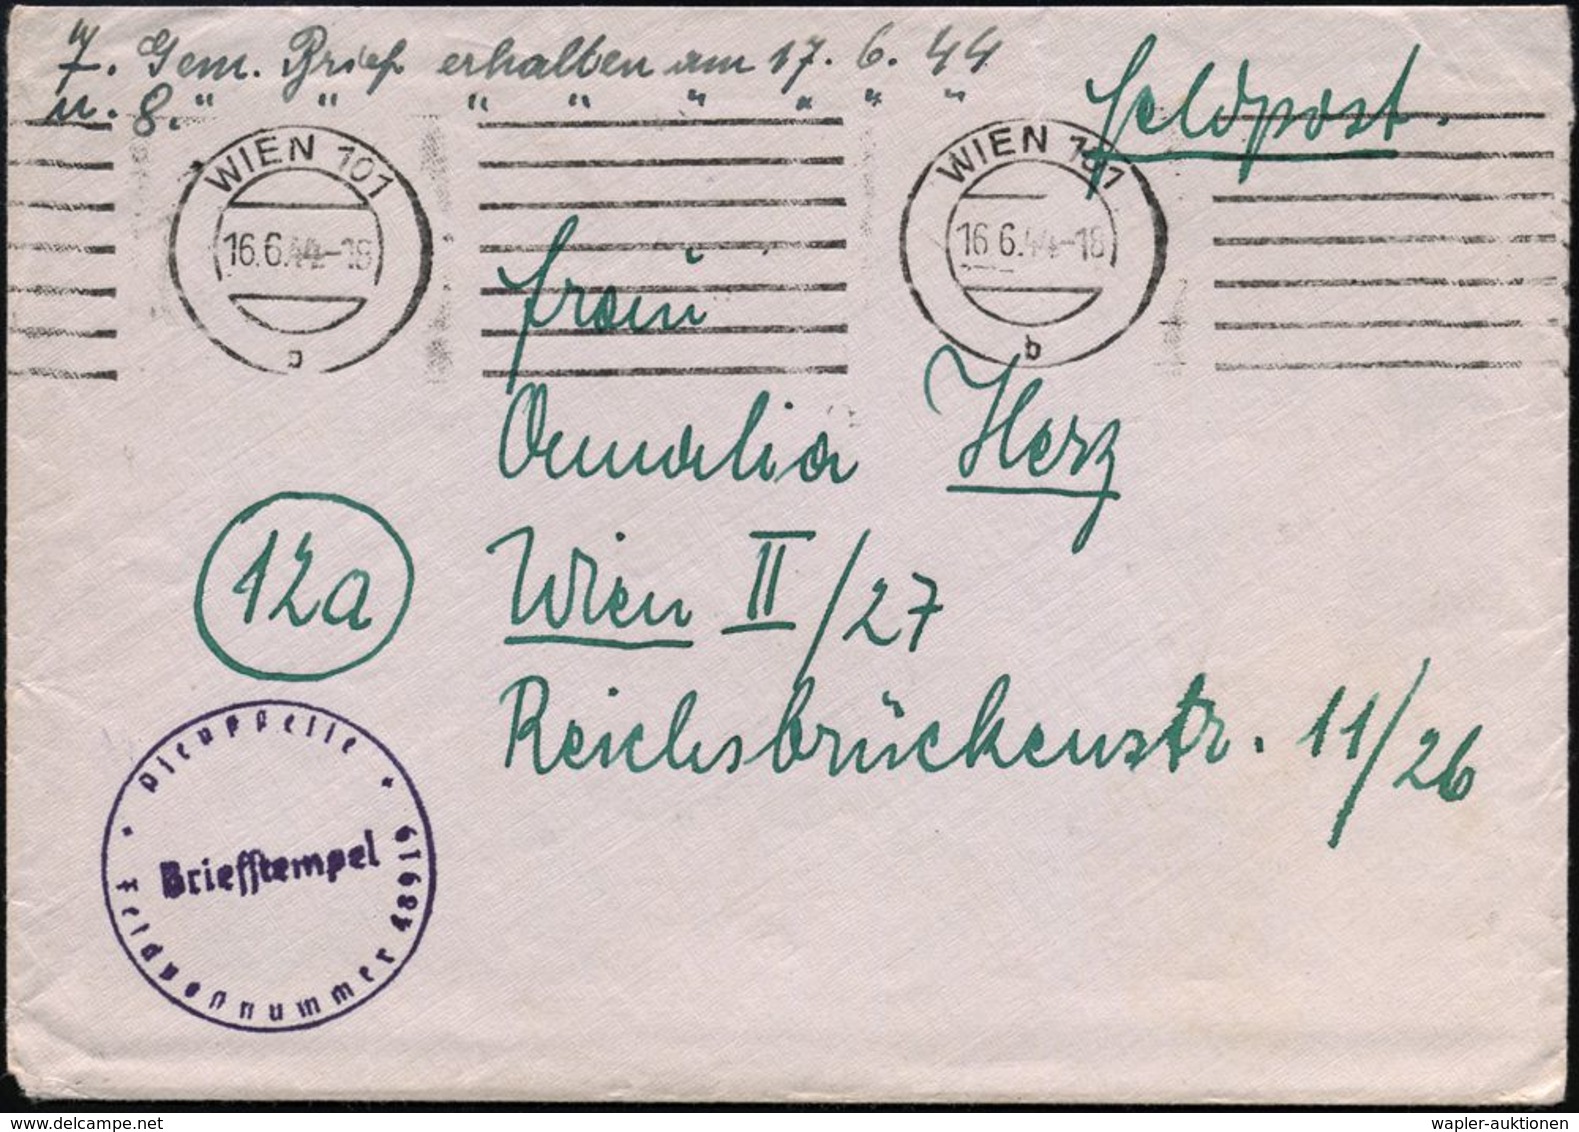 7. Gem. Brief erhalten am 17. 6. 44
u. 8. " " " " " " " "
Feldpost.
WIEN 101
16.6.44-18
b
WIEN 101
16.6.44-18
b
Frau
Amalia Herz
12a
Wien II/27
Reichsbrückenstr. 11/26
Dienststelle
Briefstempel
Feldpostnummer 48919
wapler-auktionen